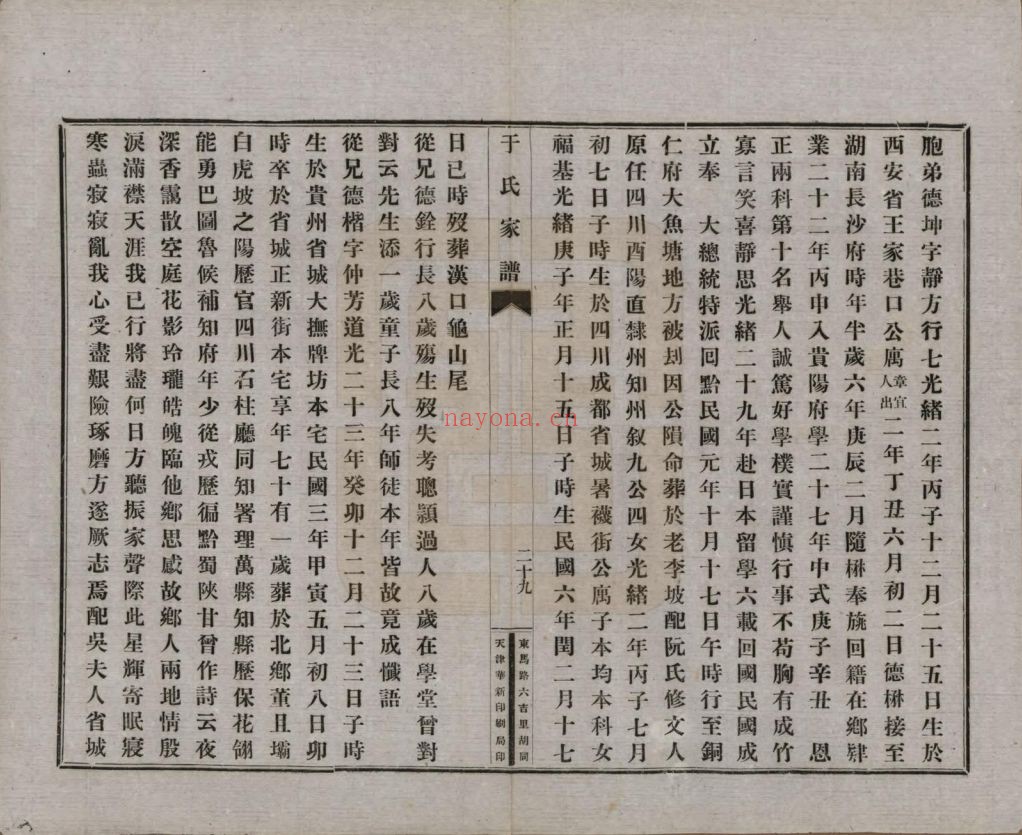 胞弟德坤字靜方行七光緒二年丙子十二月二十五日生於
西安省王家巷口公寓章宜人出二年丁丑六月初二日德楙接至
湖南長沙府時年半歲六年庚辰二月隨楙奉旐回籍在鄉肄
業二十二年丙申入貴陽府學二十七年中式庚子辛丑 恩
正兩科第十名舉人誠篤好學樸實謹慎行事不苟胸有成竹
寡言笑喜靜思光緒二十九年赴日本留學六載回國民國成
立奉 大總統特派回黔民國元年十月十七日午時行至銅
仁府大魚塘地方被刦因公隕命葬於老李坡配阮氏修文人
原任四川酉陽直隸州知州叙九公四女光緒二年丙子七月
初七日子時生於四川成都省城暑襪街公寓子本均本科女
福基光緒庚子年正月十五日子時生民國六年閏二月十七
于氏家譜
二十九
東馬路六吉里胡同
天津華新印刷局印
日巳時歿葬漢口龜山尾
從兄德銓行長八歲殤生歿失考聰頴過人八歲在學堂曾對
對云先生添一歲童子長八年師徒本年皆故竟成懺語
從兄德楷字仲芳道光二十三年癸卯十二月二十三日子時
生於貴州省城大撫牌坊本宅民國三年甲寅五月初八日卯
時卒於省城正新街本宅享年七十有一歲葬於北鄉董且壩
白虎坡之陽歷官四川石柱廳同知署理萬縣知縣歷保花翎
能勇巴圖魯候補知府年少從戎歷徧黔蜀陝甘曾作詩云夜
深香靄散空庭花影玲瓏皓魄臨他鄉思感故鄉人兩地情殷
淚滿襟天涯我已行將盡何日方聽振家聲際此星輝寄眠寢
寒蟲寂寂亂我心受盡艱險琢磨方遂厥志焉配吳夫人省城
nayona.cn